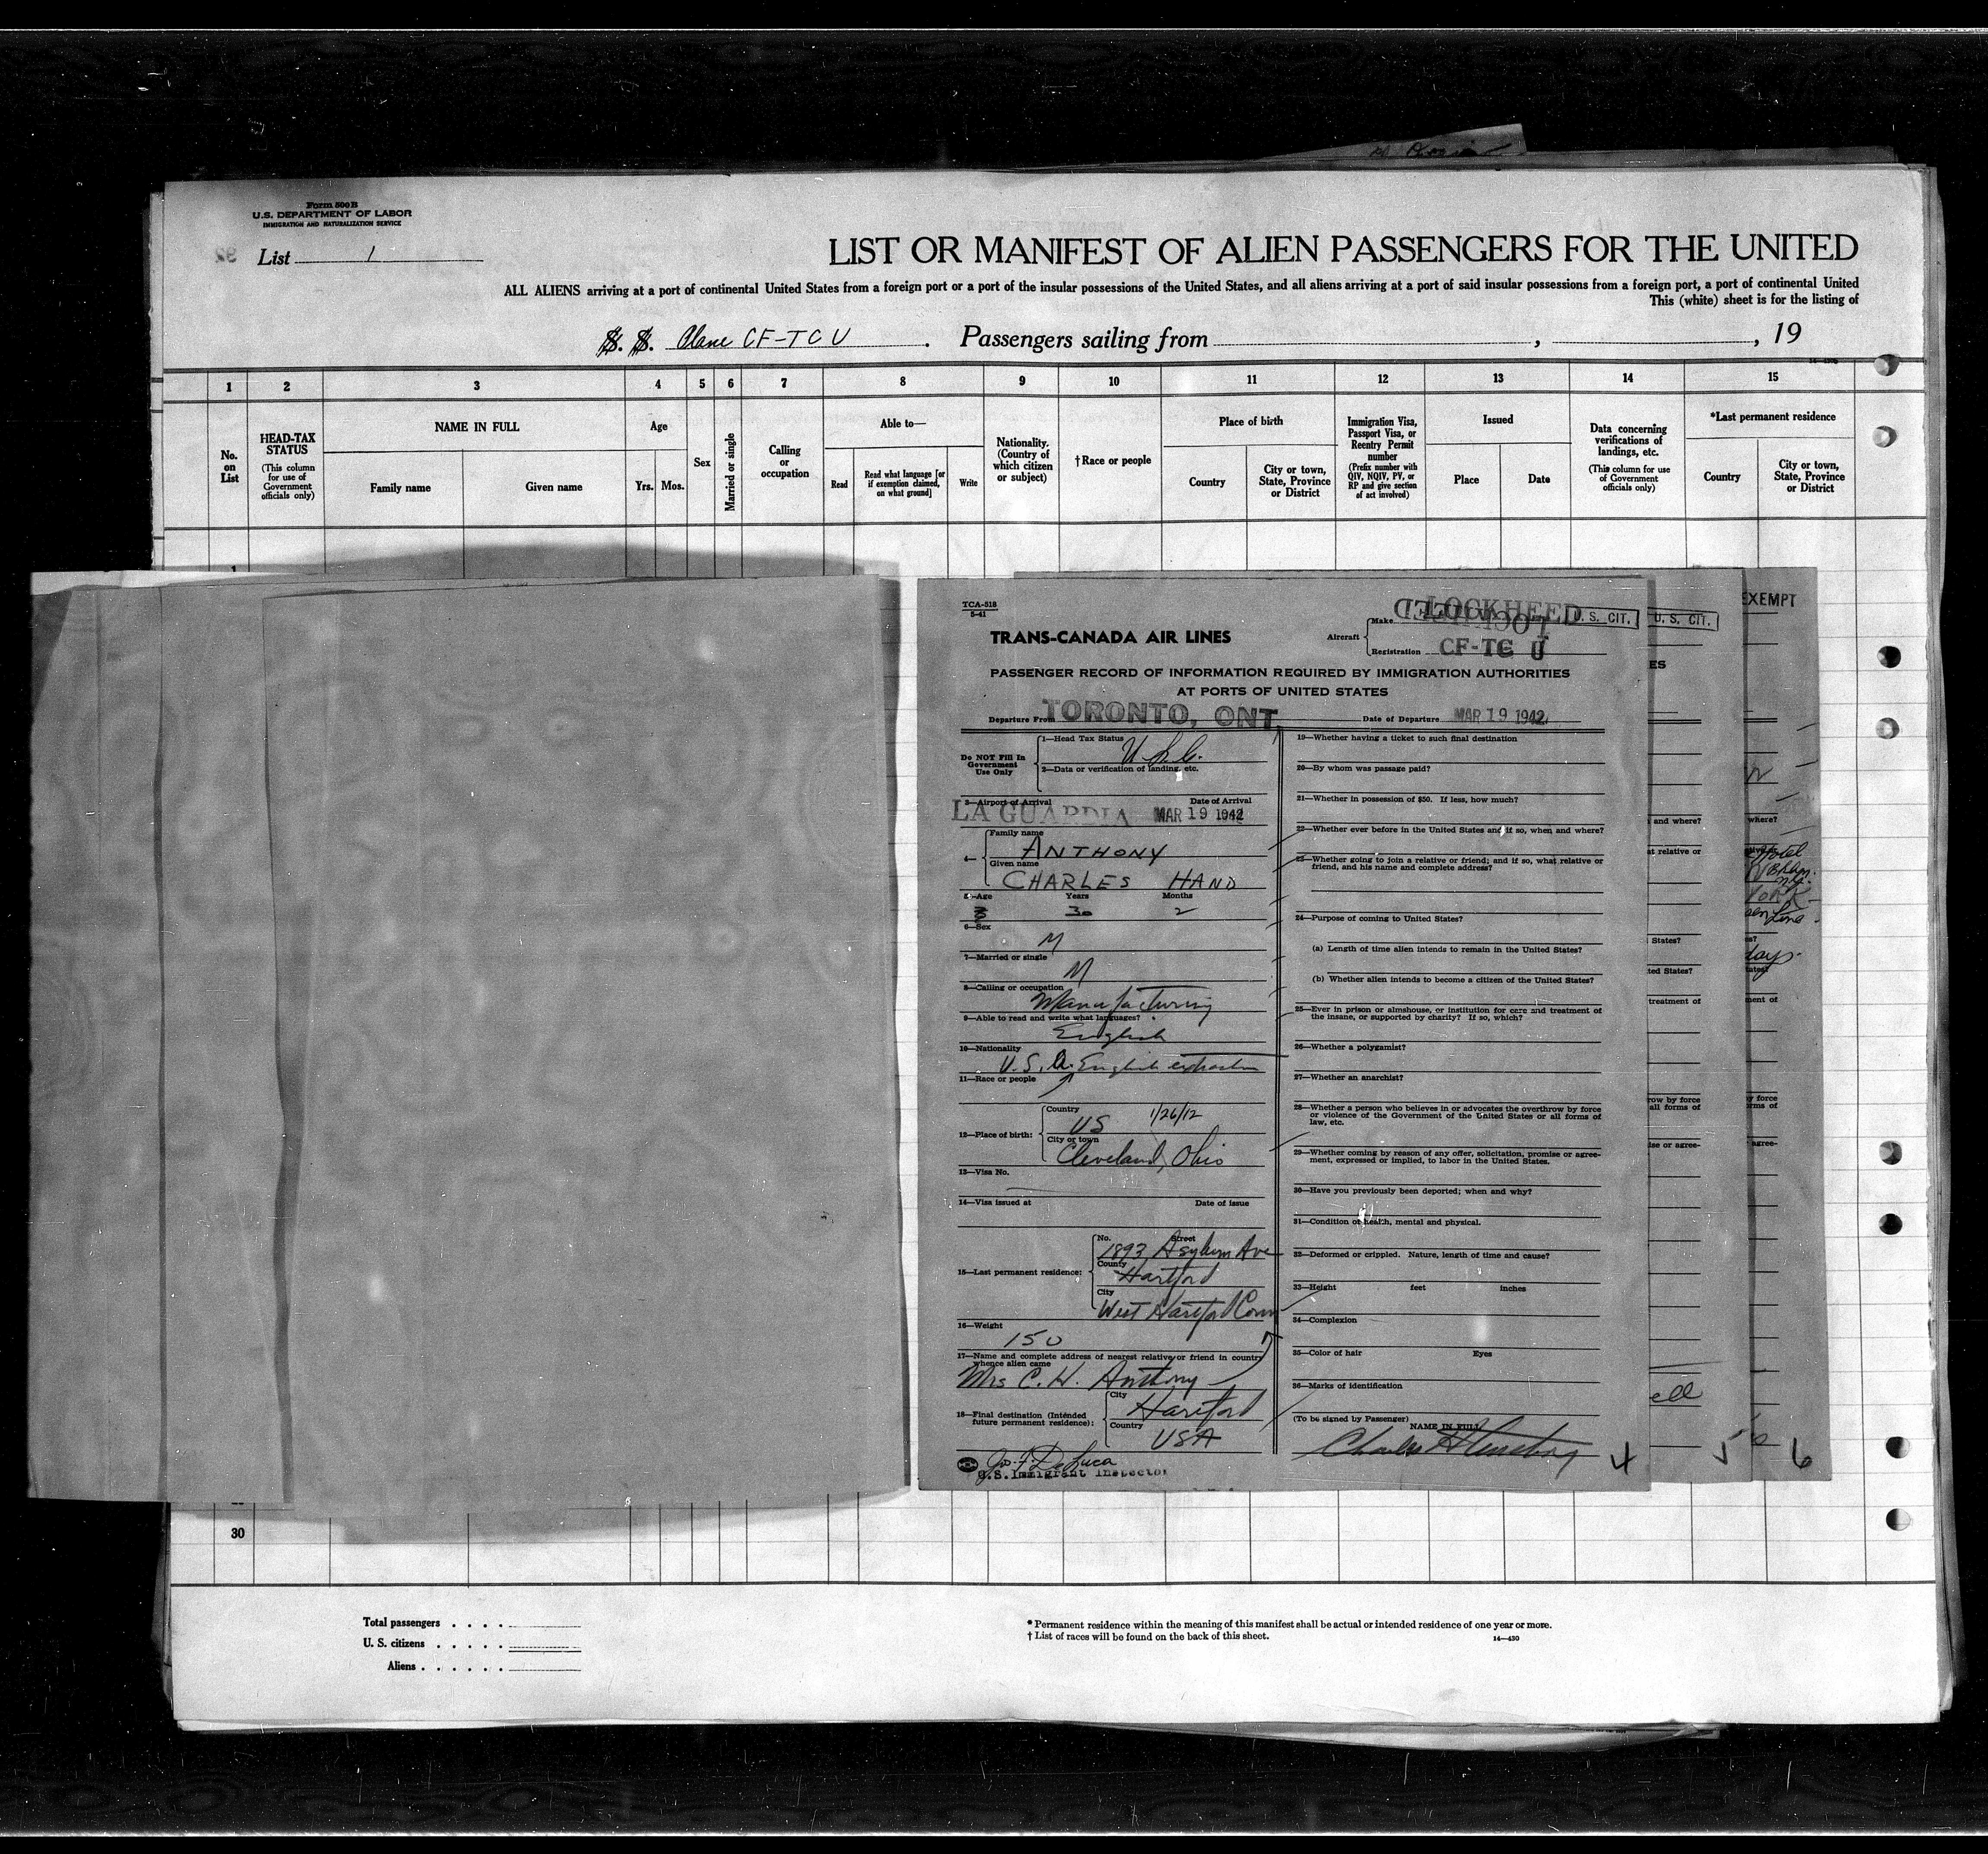 Form 500 B
U.S. DEPARTMENT OF LABOR
IMMIGRATION AND NATURALIZATION SERVICE
List 1
LIST OR MANIFEST OF ALIEN PASSENGERS FOR THE UNITED
ALL ALIENS arriving at a port of continental United States from a foreign port or a port of the insular possessions of the United States, and all aliens arriving at a port of said insular possessions from a foreign port, a port of continental United
This (white) sheet is for the listing of
S. S. Plane CF-TCU . Passengers sailing from , , 19
1 2 3 4 5 6 7 8 9 10 11 12 13 14 15
No. on List
HEAD-TAX STATUS
(This column for use of Government officials only)
NAME IN FULL
Family name Given name
Age
Yrs. Mos.
Sex
Married or single
Calling or occupation
Able to—
Read
Read what language [or if exemption claimed, on what ground]
Write
Nationality. (Country of which citizen or subject)
†Race or people
Place of birth
Country
City or town, State, Province or District
Immigration Visa, Passport Visa, or Reentry Permit number
(Prefix number with QIV, NQIV, PV, or RP and give section of act involved)
Issued
Place Date
Data concerning verifications of landings, etc.
(This column for use of Government officials only)
*Last permanent residence
Country
City or town, State, Province or District
TCA-518
5-41
TRANS-CANADA AIR LINES
Aircraft
Make LOCKHEED
Registration CF-TC U
U. S. CIT.
U. S. CIT.
EXEMPT
PASSENGER RECORD OF INFORMATION REQUIRED BY IMMIGRATION AUTHORITIES
AT PORTS OF UNITED STATES
Departure From TORONTO, ONT. Date of Departure MAR 19 1942
Do NOT Fill In Government Use Only
1—Head Tax Status
U.S.C.
2—Data or verification of landing, etc.
3—Airport of Arrival Date of Arrival
LA GUARDIA MAR 19 1942
4—
Family name
ANTHONY
Given name
CHARLES HAND
5—Age Years Months
30 2
6—Sex
M
7—Married or single
M
8—Calling or occupation
Manufacturing
9—Able to read and write what languages?
English
10—Nationality
U.S.A. English extraction
11—Race or people
12—Place of birth:
Country
US 1/26/12
City or town
Cleveland, Ohio
13—Visa No.
14—Visa issued at Date of issue
15—Last permanent residence:
No. Street
1893 Asylum Ave
County
Hartford
City
West Hartford Conn
16—Weight
150
17—Name and complete address of nearest relative or friend in country
whence alien came
Mrs C. H. Anthony
18—Final destination (Intended
future permanent residence):
City
Hartford
Country
USA
Jos. F. DeLuca
U.S. Immigrant Inspector
19—Whether having a ticket to such final destination
20—By whom was passage paid?
21—Whether in possession of $50. If less, how much?
22—Whether ever before in the United States and if so, when and where?
23—Whether going to join a relative or friend; and if so, what relative or
friend, and his name and complete address?
24—Purpose of coming to United States?
(a) Length of time alien intends to remain in the United States?
(b) Whether alien intends to become a citizen of the United States?
25—Ever in prison or almshouse, or institution for care and treatment of
the insane, or supported by charity? If so, which?
26—Whether a polygamist?
27—Whether an anarchist?
28—Whether a person who believes in or advocates the overthrow by force
or violence of the Government of the United States or all forms of
law, etc.
29—Whether coming by reason of any offer, solicitation, promise or agree-
ment, expressed or implied, to labor in the United States.
30—Have you previously been deported; when and why?
31—Condition of health, mental and physical.
32—Deformed or crippled. Nature, length of time and cause?
33—Height feet inches
34—Complexion
35—Color of hair Eyes
36—Marks of identification
(To be signed by Passenger) NAME IN FULL
Charles H Anthony
4
ES
and where?
at relative or
States?
ted States?
treatment of
row by force
all forms of
ise or agree-
ell
5
where?
Hotel
days
ment of
y force
rms of
agree-
6
30
Total passengers . . . .
U. S. citizens . . . . .
Aliens . . . . . .
* Permanent residence within the meaning of this manifest shall be actual or intended residence of one year or more.
† List of races will be found on the back of this sheet.
14—430